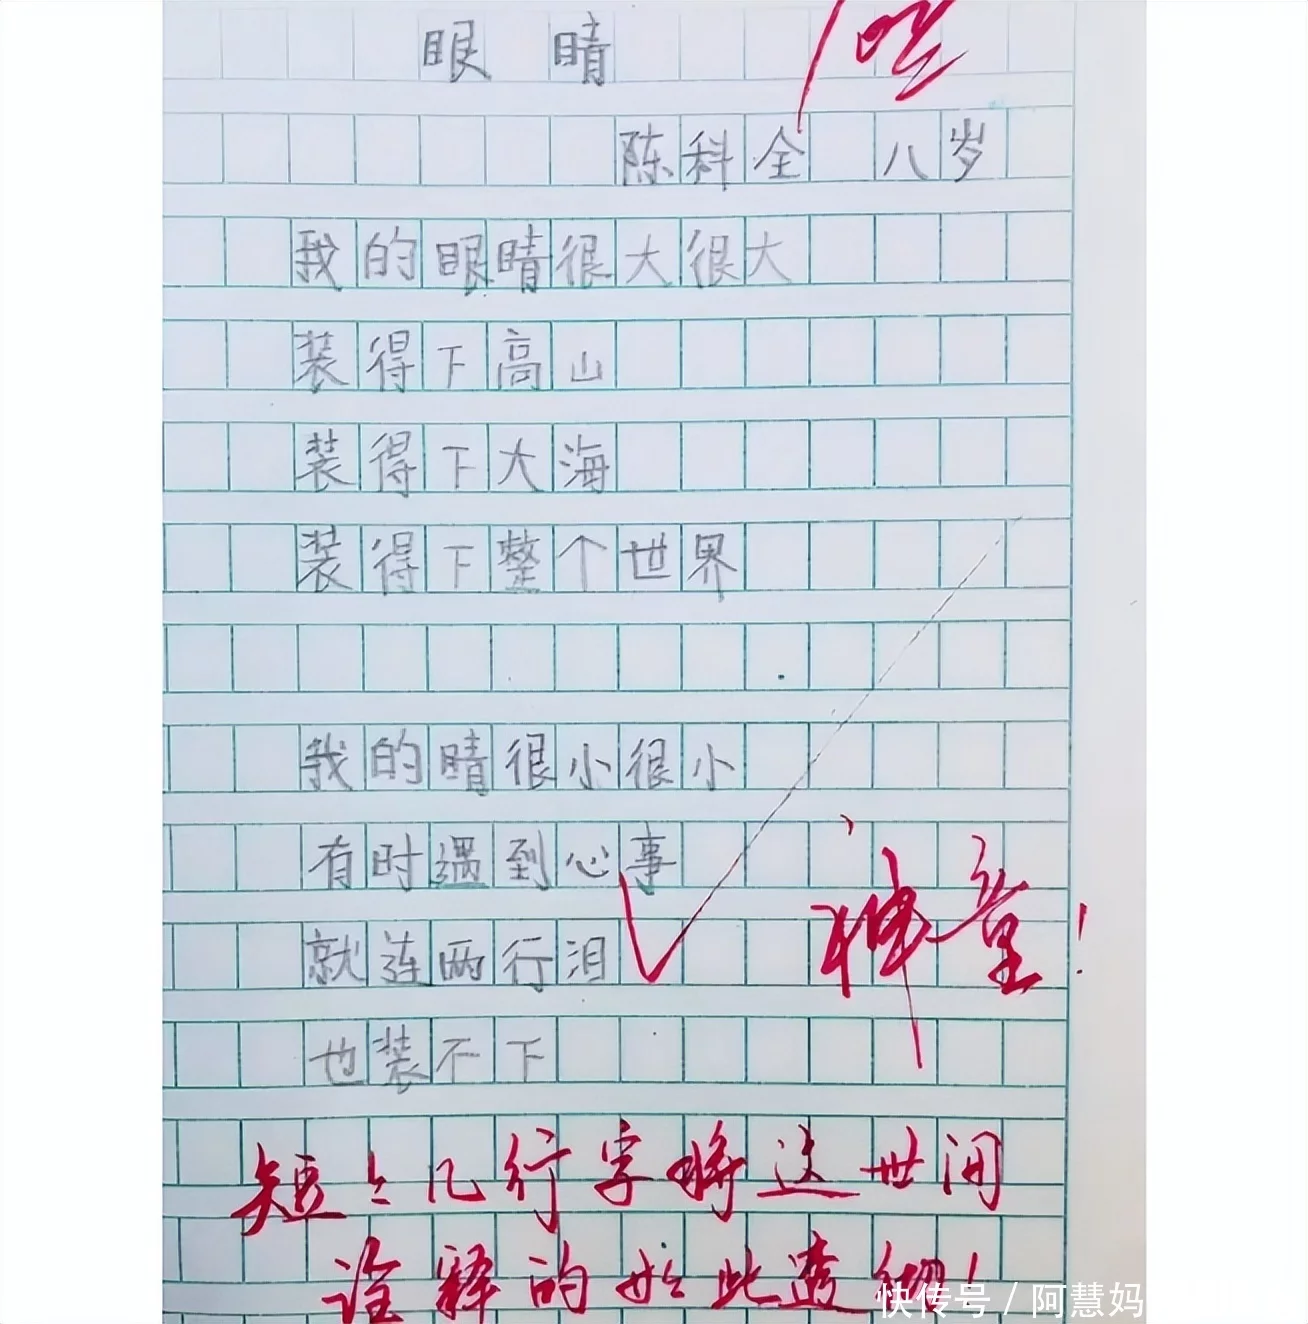 眼睛
陈科全 八岁
我的眼睛很大很大
装得下高山
装得下大海
装得下整个世界
我的睛很小很小
有时遇到心事
就连两行泪
也装不下
神童！
短短几行字将这世间
诠释的如此透彻！
快传号/阿慧妈